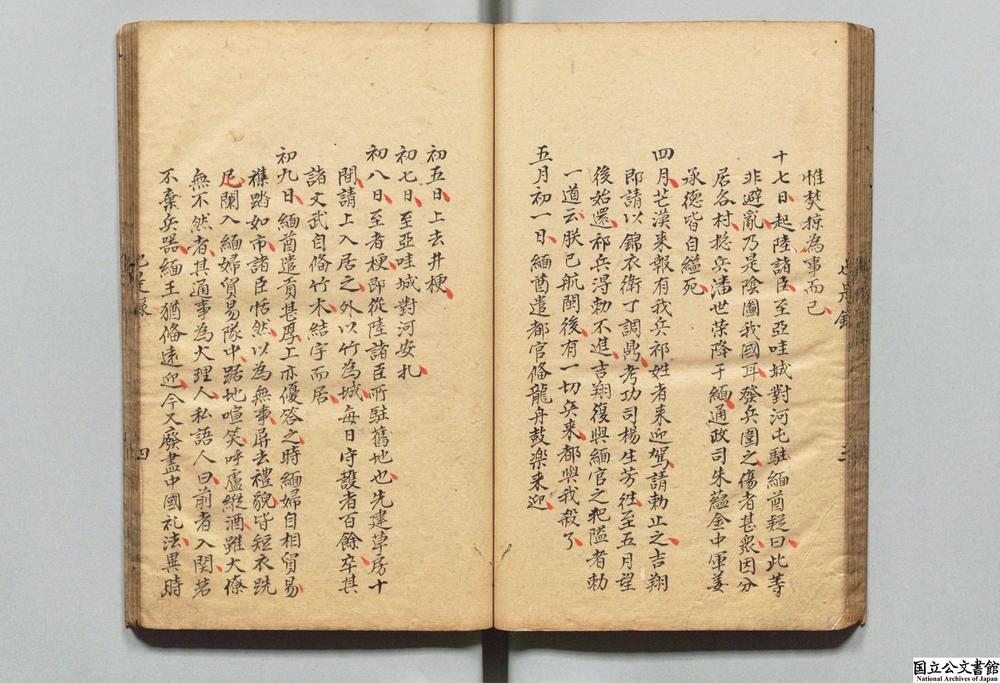 惟焚掠為事而已
十七日起陸諸臣至亞哇城對河屯駐緬酋疑曰此等
非避亂乃是陰圖我國耳發兵圍之傷者甚衆因分
居各村揔兵潘世荣降于緬通政司朱蘊金中軍姜
承德皆自縊死
四月芒漠来報有我兵祁姓者来迎駕請勅止之吉翔
即請以錦衣衛丁調鼎考功司楊生芳徃至五月望
後始還祁兵得勅不進吉翔復與緬官之把隘者勅
一道云朕已航閩後有一切兵来都與我殺了
五月初一日緬酋遣都官俻龍舟鼓楽来迎
三
初五日上去井梗
初七日至亞哇城對河安札
初八日至者梗即從陸諸臣所駐舊地也先建草房十
間請上入居之外以竹為城每日守護者百餘卒其
諸文武自俻竹木結宇而居
初九日緬酋遣貢甚厚上亦優答之時緬婦自相貿易
雜踏如市諸臣恬然以為無事屏去禮貌皆短衣跣
足闌入緬婦貿易隊中踞地喧笑呼盧縱酒雖大僚
無不然者其通事為大理人私語人曰前者入関若
不棄兵器緬王猶俻遠迎今又廢盡中國礼法異時
四
国立公文書館
National Archives of Japan